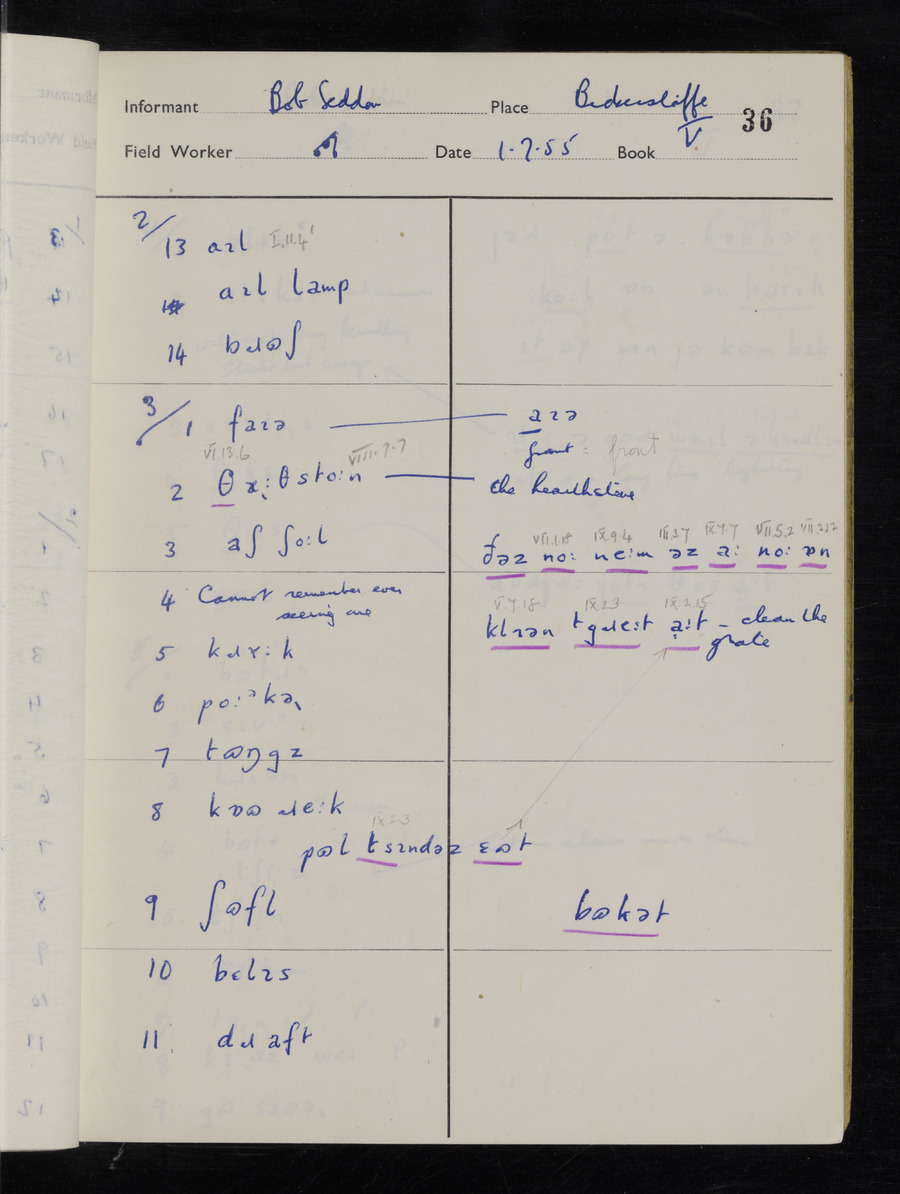 Informant Bob Seddon Place Bickerstaffe 36
Field Worker Date 1·7·55 Book V
2/
13 aɪl I.11.4
aɪl lamp
14 bɹʊʃ
3/
1 faɪə aɪə
front = front
VI.13.6 VIII.7.7
2 θ ɤ̨:θsto:n the hearthstone
3 aʃ ʃo:l
VII.1.18 IX.9.4 III.3.7 IX.7.7 VII.5.2 VII.2.12
ðəz no: ne:m əz a: no: ɒn
4 Cannot remember ever
seeing one
V.7.18 IX.2.3 IX.2.15
klɪən t gɹe:t a:t – clean the
grate
5 kɹɤ:k
6 po:ᵊkə
7 tɒŋgz
8 kɒʊ ɹe:k
IX.2.3
pʊl t sɪndəz ɛʊt
9 ʃʊfl bʊkət
10 bɛlɪs
11 dɹaft